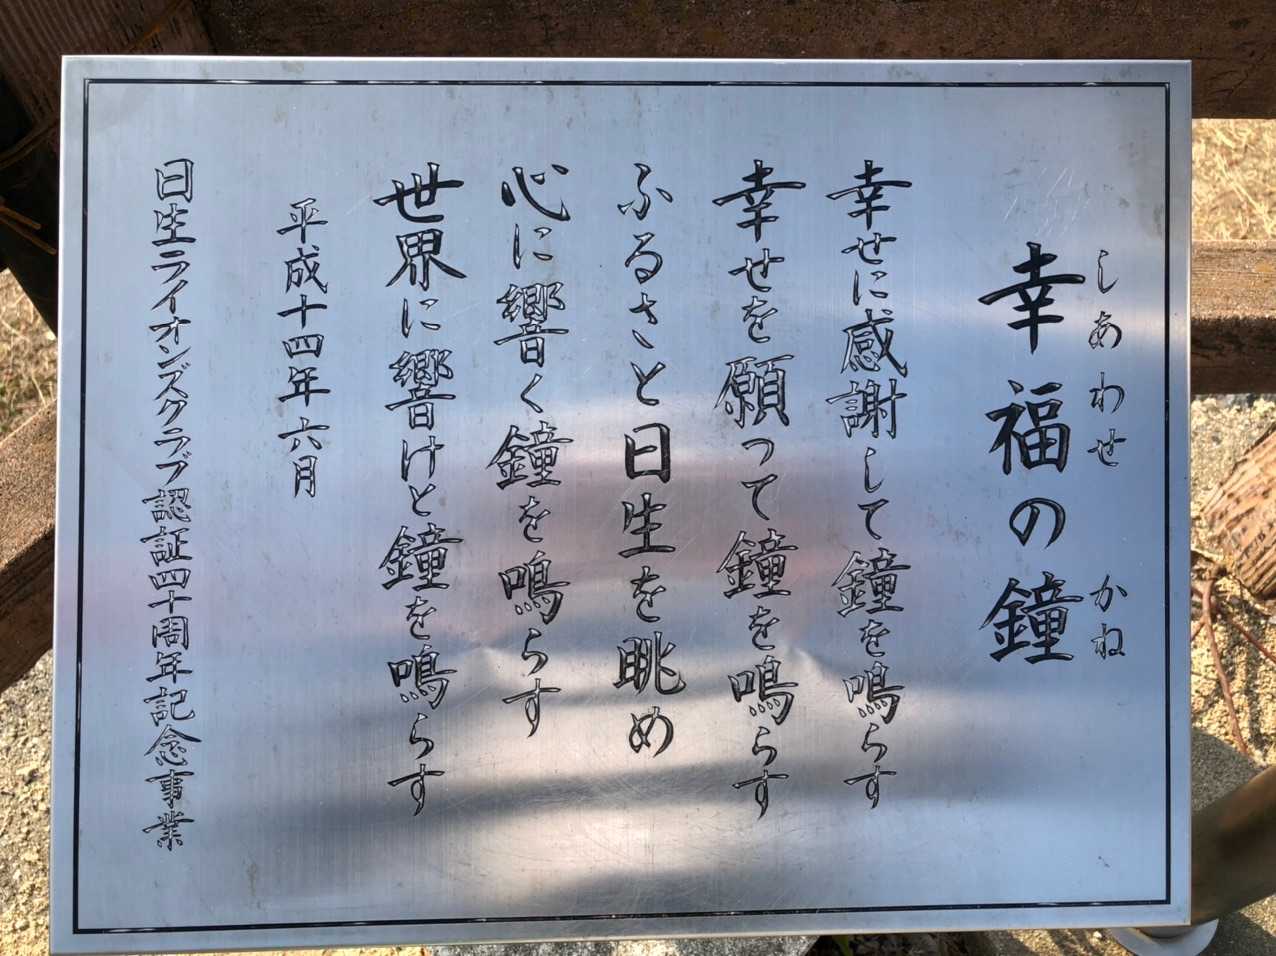 しあわせ かね
幸福の鐘
幸せに感謝して鐘を鳴らす
幸せを願って鐘を鳴らす
ふるさと日生を眺め
心に響く鐘を鳴らす
世界に響けと鐘を鳴らす
平成十四年六月
日生ライオンズクラブ認証四十周年記念事業